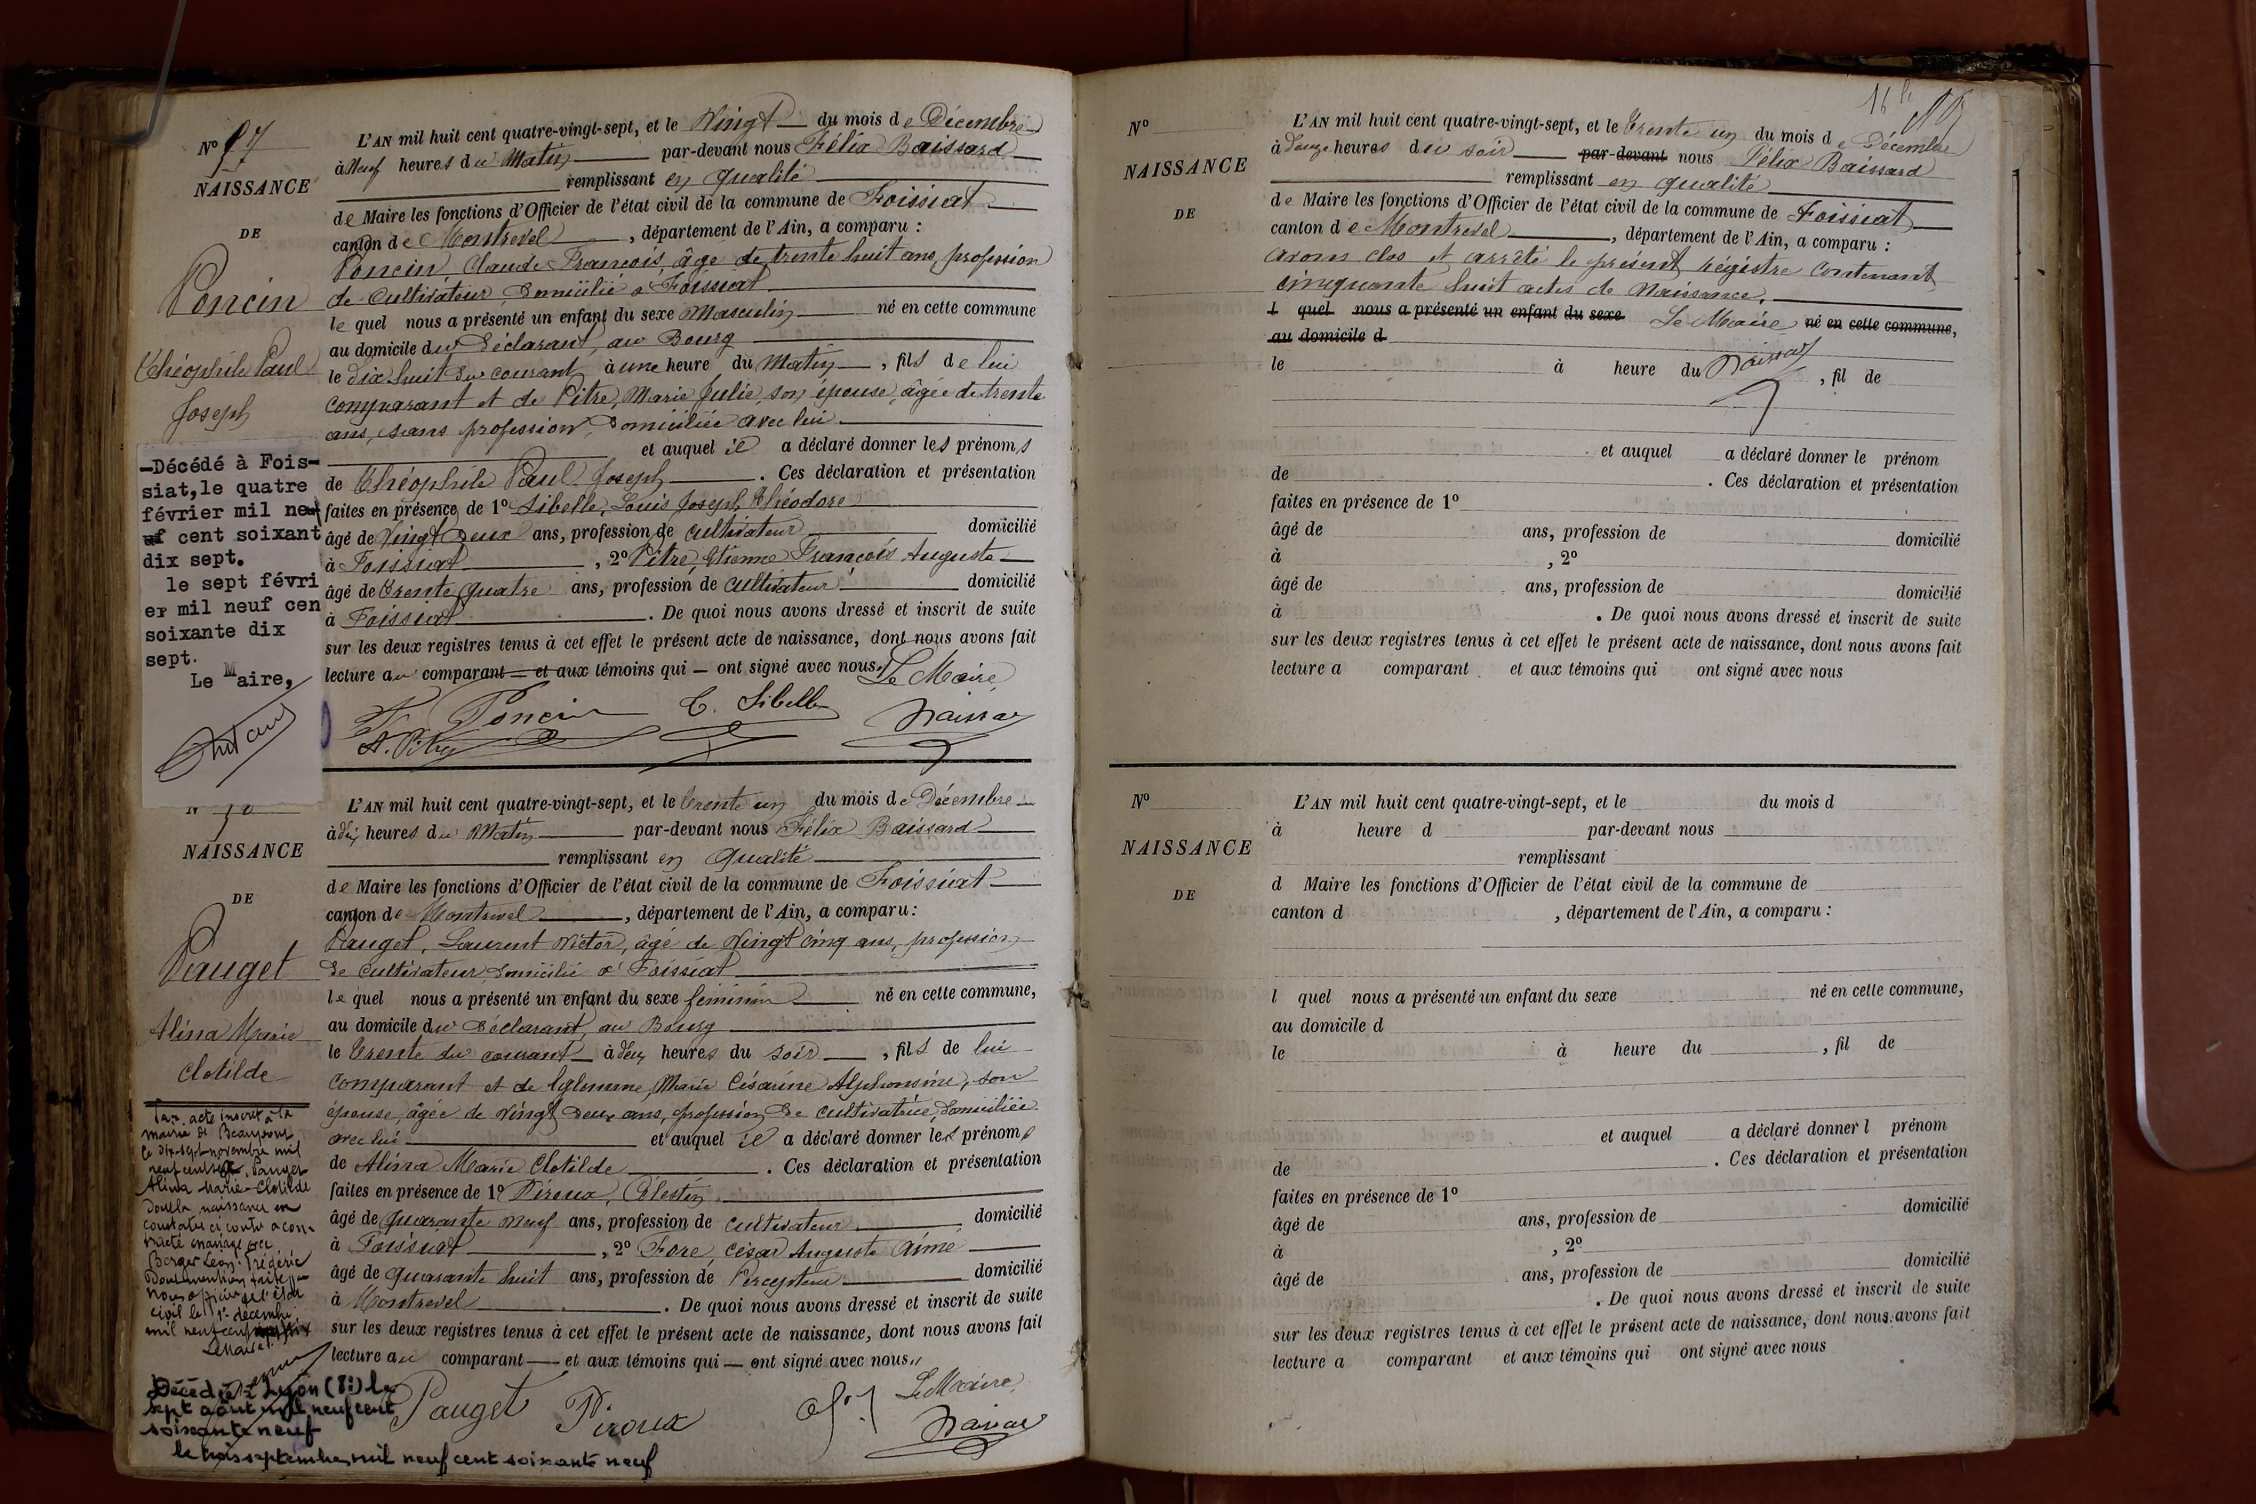 Nº 57
NAISSANCE
DE
Poncin
Théophile Paul
Joseph
—Décédé à Fois-
siat, le quatre
février mil neuf
cent soixant
dix sept.
le sept févri
er mil neuf cen
soixante dix
sept.
Le Maire,
L'AN mil huit cent quatre-vingt-sept, et le Vingt du mois de Décembre
à Neuf heures du Matin par-devant nous Félix Baissard
remplissant en qualité
de Maire les fonctions d'Officier de l'état civil de la commune de Foissiat
canton de Montrevel, département de l'Ain, a comparu :
Poncin, Claude François, âgé de trente huit ans, profession
de Cultivateur, Domicilié à Foissiat
le quel nous a présenté un enfant du sexe Masculin né en cette commune
au domicile du Déclarant, au Bourg
le dix huit du courant, à une heure du Matin, fils de lui
comparant et de Pitre, Marie Julie, son épouse, âgée de trente
ans, sans profession, Domiciliée avec lui
et auquel il a déclaré donner les prénoms
de Théophile Paul Joseph. Ces déclaration et présentation
faites en présence de 1º Sibelle, Louis Joseph Théodore
âgé de Vingt Deux ans, profession de cultivateur domicilié
à Foissiat, 2º Pitre, Etienne François Auguste
âgé de Trente quatre ans, profession de cultivateur domicilié
à Foissiat. De quoi nous avons dressé et inscrit de suite
sur les deux registres tenus à cet effet le présent acte de naissance, dont nous avons fait
lecture au comparant et aux témoins qui ont signé avec nous. Le Maire,
Poncin
Sibelle
A. Pitre
Nº 58
NAISSANCE
DE
Pauget
Alina Marie
Clotilde
Par acte inscrit à la
mairie de Beaupont
le dix-sept novembre mil
neuf cent Pauget
Alina Marie-Clotilde
dont la naissance est
constatée ci contre a con-
tracté mariage avec
Berger Léon Frédéric
Dont mention faite par
Nous officier de l'état
civil le 1er décembre
mil neuf cent
Le Maire
Décédée à Lyon (8è) le
sept août mil neuf cent
soixante neuf
le trois septembre mil neuf cent soixante neuf
L'AN mil huit cent quatre-vingt-sept, et le Trente un du mois de Décembre
à dix heures du Matin par-devant nous Félix Baissard
remplissant en qualité
de Maire les fonctions d'Officier de l'état civil de la commune de Foissiat
canton de Montrevel, département de l'Ain, a comparu :
Pauget, Laurent Victor, âgé de Vingt cinq ans, profession
de cultivateur, Domicilié à Foissiat
le quel nous a présenté un enfant du sexe féminin né en cette commune,
au domicile du Déclarant, au Bourg
le Trente du courant à deux heures du soir, fils de lui
comparant et de Marie Césarine Alphonsine, son
épouse, âgée de Vingt Deux ans, profession de cultivatrice, Domiciliée
avec lui et auquel il a déclaré donner les prénoms
de Alina Marie Clotilde. Ces déclaration et présentation
faites en présence de 1º Piroux, Célestin
âgé de quarante neuf ans, profession de cultivateur domicilié
à Foissiat, 2º Fore, César Auguste Aimé
âgé de quarante huit ans, profession de Percepteur domicilié
à Montrevel. De quoi nous avons dressé et inscrit de suite
sur les deux registres tenus à cet effet le présent acte de naissance, dont nous avons fait
lecture au comparant et aux témoins qui ont signé avec nous
Le Maire,
Pauget Piroux
Nº
NAISSANCE
DE
L'AN mil huit cent quatre-vingt-sept, et le Trente un du mois de Décembre
à douze heures du soir par-devant nous Félix Baissard
remplissant en qualité
de Maire les fonctions d'Officier de l'état civil de la commune de Foissiat
canton de Montrevel, département de l'Ain, a comparu :
avons clos et arrêté le présent régistre contenant
cinquante huit actes de Naissance.
l quel nous a présenté un enfant du sexe Le Maire né en cette commune,
au domicile d
le à heure du , fil de
et auquel a déclaré donner le prénom
de . Ces déclaration et présentation
faites en présence de 1º
âgé de ans, profession de domicilié
à , 2º
âgé de ans, profession de domicilié
à . De quoi nous avons dressé et inscrit de suite
sur les deux registres tenus à cet effet le présent acte de naissance, dont nous avons fait
lecture a comparant et aux témoins qui ont signé avec nous
Nº
NAISSANCE
DE
L'AN mil huit cent quatre-vingt-sept, et le du mois d
à heure d par-devant nous
remplissant
d Maire les fonctions d'Officier de l'état civil de la commune de
canton d , département de l'Ain, a comparu :
l quel nous a présenté un enfant du sexe né en cette commune,
au domicile d
le à heure du , fil de
et auquel a déclaré donner l prénom
de . Ces déclaration et présentation
faites en présence de 1º
âgé de ans, profession de domicilié
à , 2º
âgé de ans, profession de domicilié
. De quoi nous avons dressé et inscrit de suite
sur les deux registres tenus à cet effet le présent acte de naissance, dont nous avons fait
lecture a comparant et aux témoins qui ont signé avec nous